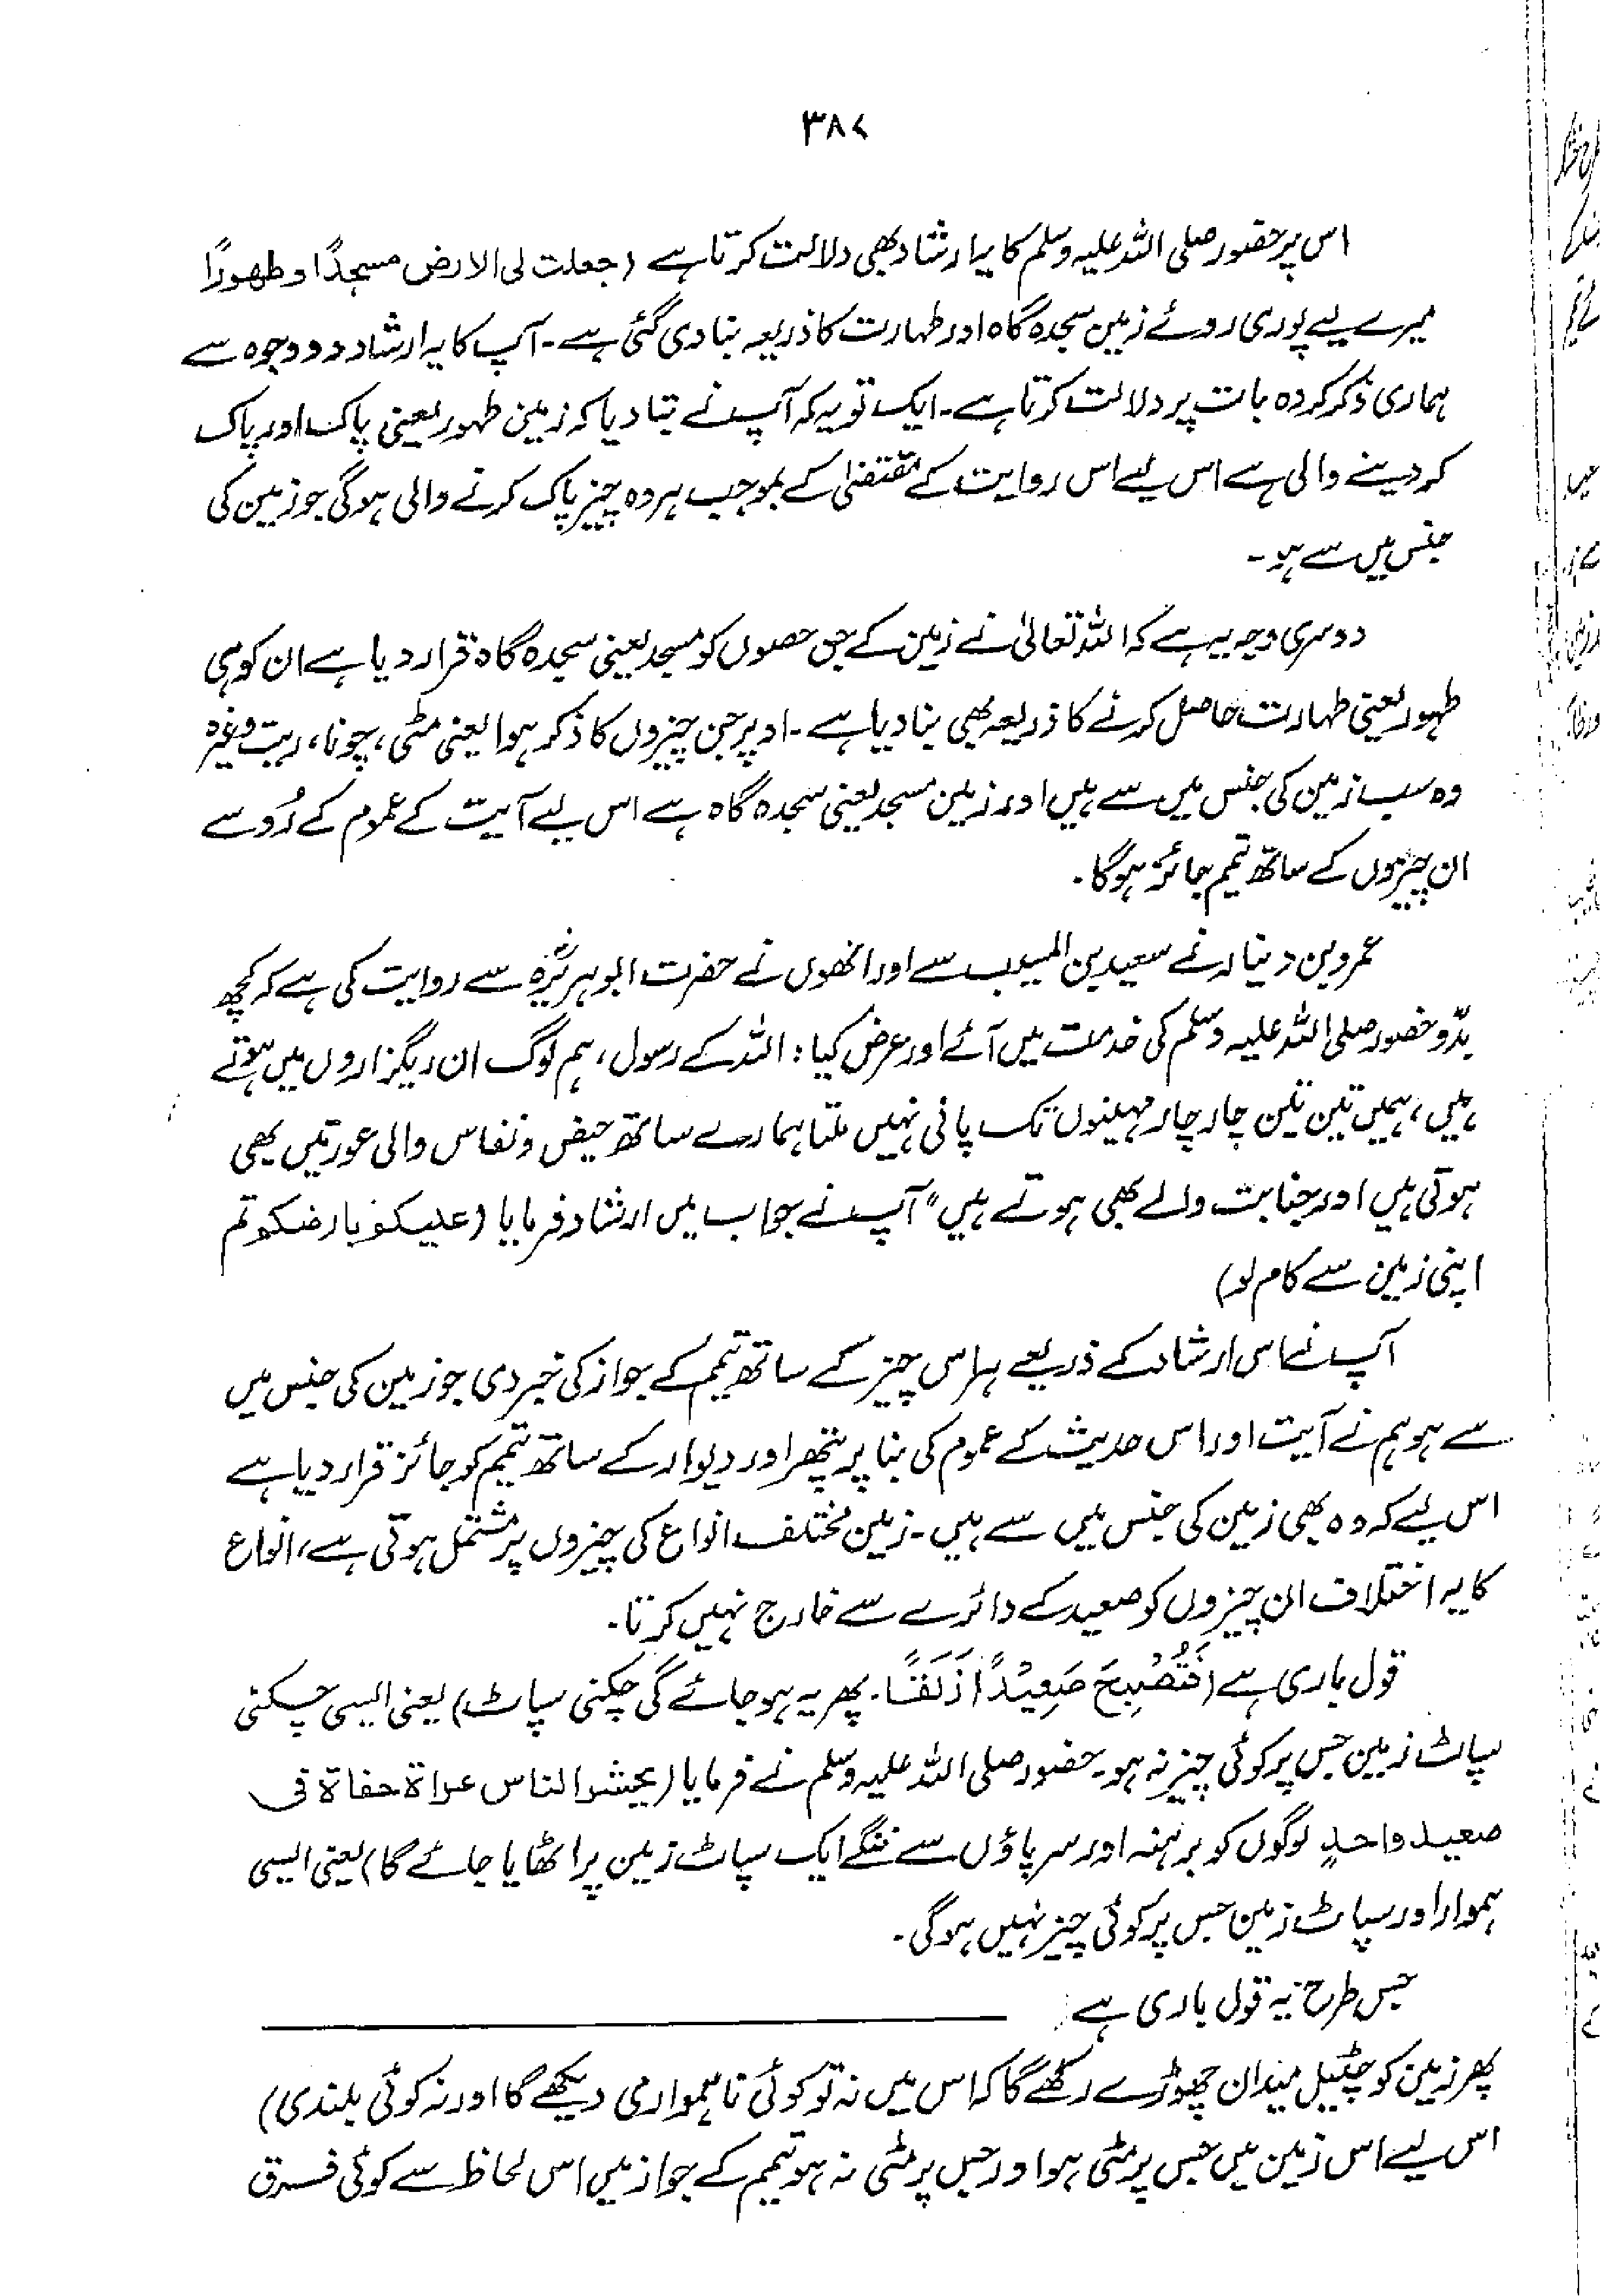 ۳۸۷
اس پر حضور صلی اللہ علیہ وسلم کا یہ ارشاد بھی دلالت کرتا ہے (جعلت لی الارض مسجدًا و طھورًا
میرے لیے پوری روئے زمین سجدہ گاہ اور طہارت کا ذریعہ بنا دی گئی ہے۔ آپ کا یہ ارشاد دو وجوہ سے
ہماری ذکر کردہ بات پر دلالت کرتا ہے۔ ایک تو یہ کہ آپ نے بتا دیا کہ زمین طہور یعنی پاک اور پاک
کر دینے والی ہے اس لیے اس روایت کے مقتضیٰ کے بموجب ہر وہ چیز پاک کرنے والی ہوگی جو زمین کی
جنس میں سے ہو۔
دوسری وجہ یہ ہے کہ اللہ تعالیٰ نے زمین کے جن حصوں کو مسجد یعنی سجدہ گاہ قرار دیا ہے ان کو ہی
طہور یعنی طہارت حاصل کرنے کا ذریعہ بھی بنا دیا ہے۔ اوپر جن چیزوں کا ذکر ہوا یعنی مٹی، چونا، ریت وغیرہ
وہ سب زمین کی جنس میں سے ہیں اور زمین مسجد یعنی سجدہ گاہ ہے اس لیے آیت کے عموم کے رُو سے
ان چیزوں کے ساتھ تیمم جائز ہوگا۔
عمرو بن دینار نے سعید بن المسیب سے اور انھوں نے حضرت ابوہریرہؓ سے روایت کی ہے کہ کچھ
بدّو حضور صلی اللہ علیہ وسلم کی خدمت میں آئے اور عرض کیا: اللہ کے رسول، ہم لوگ ان ریگزاروں میں ہوتے
ہیں، ہمیں تین تین چار چار مہینوں تک پانی نہیں ملتا ہمارے ساتھ حیض و نفاس والی عورتیں بھی
ہوتی ہیں اور جنابت والے بھی ہوتے ہیں" آپ نے جواب میں ارشاد فرمایا (علیکم بارضکم تم
اپنی زمین سے کام لو)
آپ نے اس ارشاد کے ذریعے ہر اس چیز کے ساتھ تیمم کے جواز کی خبر دی جو زمین کی جنس میں
سے ہو ہم نے آیت اور اس حدیث کے عموم کی بنا پر پتھر اور دیوار کے ساتھ تیمم کو جائز قرار دیا ہے
اس لیے کہ وہ بھی زمین کی جنس میں سے ہیں۔ زمین مختلف انواع کی چیزوں پر مشتمل ہوتی ہے، انواع
کا یہ اختلاف ان چیزوں کو صعید کے دائرے سے خارج نہیں کرتا۔
قول باری ہے (فَتُصْبِحَ صَعِيْدًا زَلَقًا۔ پھر یہ ہو جائے گی چکنی سپاٹ) یعنی ایسی چکنی
سپاٹ زمین جس پر کوئی چیز نہ ہو۔ حضور صلی اللہ علیہ وسلم نے فرمایا (یحشر الناس عراۃ حفاۃ فی
صعید واحدٍ لوگوں کو برہنہ اور سر پاؤں سے ننگے ایک سپاٹ زمین پر اٹھایا جائے گا) یعنی ایسی
ہموار اور سپاٹ زمین جس پر کوئی چیز نہیں ہوگی۔
جس طرح یہ قول باری ہے
پھر زمین کو چٹیل میدان چھوڑے رکھے گا کہ اس میں نہ تو کوئی ناہمواری دیکھے گا اور نہ کوئی بلندی)
اس لیے اس زمین میں جس پر مٹی ہو اور جس پر مٹی نہ ہو تیمم کے جواز میں اس لحاظ سے کوئی فرق